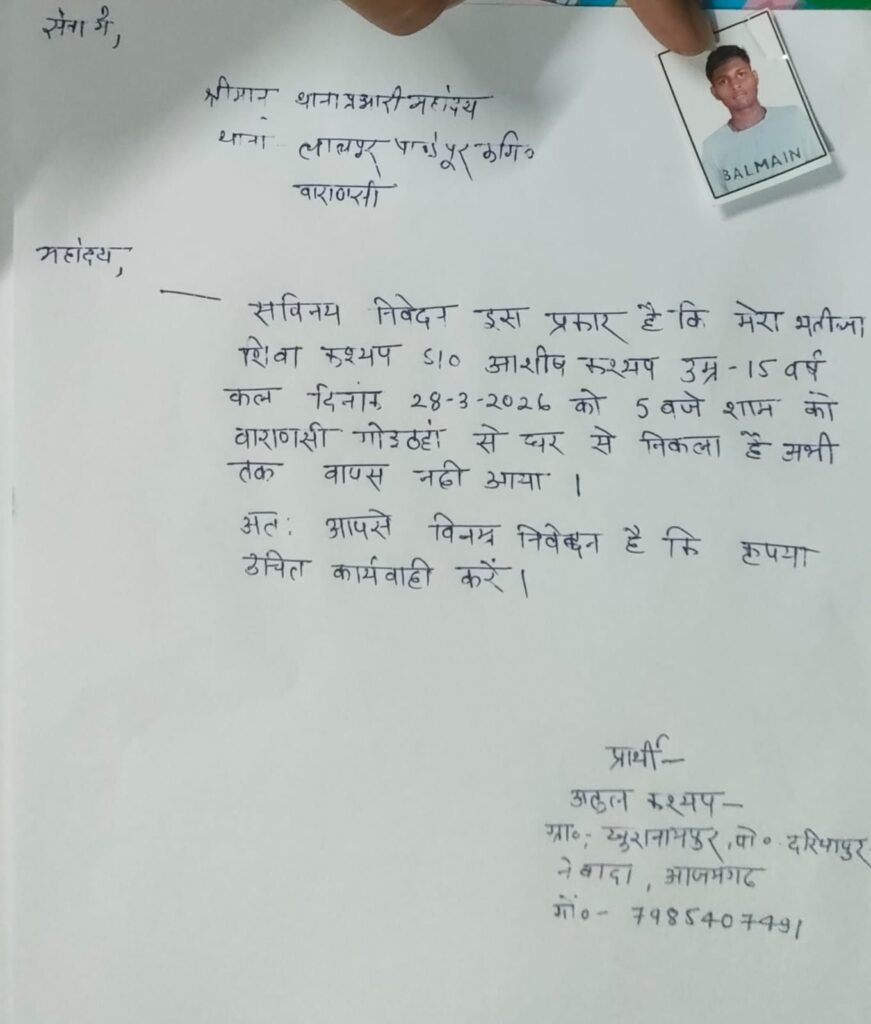 सेवा में,
BALMAIN
श्रीमान थाना प्रभारी महोदय
थाना लालपुर पाण्डेपुर कमि०
वाराणसी
महोदय,
सविनय निवेदन इस प्रकार है कि मेरा भतीजा
शिवा कश्यप S/o आशीष कश्यप उम्र-15 वर्ष
कल दिनांक 28-3-2026 को 5 बजे शाम को
वाराणसी गोइठहां से घर से निकला है अभी
तक वापस नही आया ।
अतः आपसे विनम्र निवेदन है कि कृपया
उचित कार्यवाही करें ।
प्रार्थी-
अतुल कश्यप-
ग्रा०; खुरानामपुर, पो० दरियापुर
नेवादा, आजमगढ
मो०- 7985407491